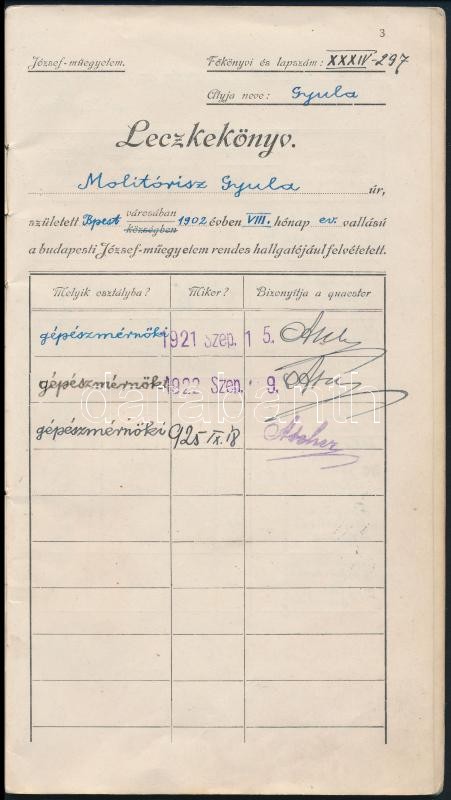 3
József-műegyetem.
Főkönyvi és lapszám: XXXIV-297
Atyja neve: Gyula
Leczkekönyv.
Molitórisz Gyula úr,
született Bpest városában községben 1902 évben VIII. hónap ev. vallású
a budapesti József-műegyetem rendes hallgatójául felvétetett.
Melyik osztályba? Mikor? Bizonyítja a quaestor
gépészmérnöki 1921 Szep. 1 5.
gépészmérnöki 1922 Szep. 9.
gépészmérnöki 925 IX. 18 Ascher
darabanth